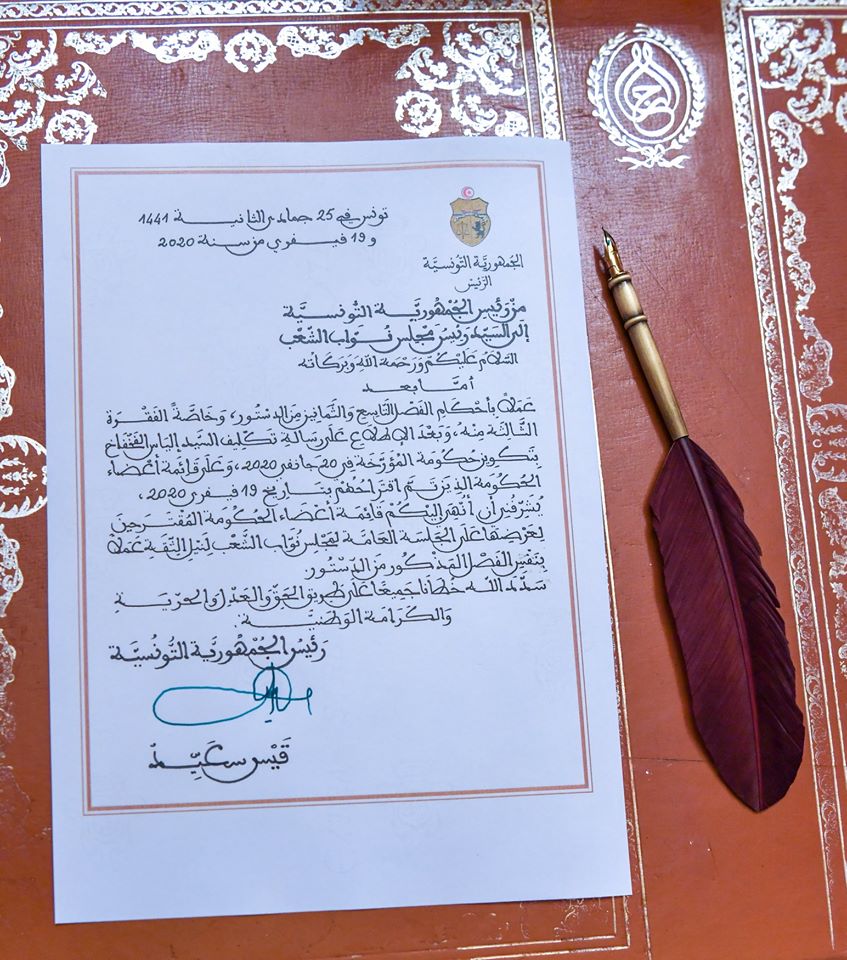 تونس في 25 جمادى الثانية 1441
و 19 فيفري من سنة 2020
الجمهوريّة التّونسيّة
الرّئيس
من رئيس الجُمْهُوريَّة التُّونسيَّة
إلى السّيّد رئيس مجلس نُوّاب الشّعْب
السّلامُ عليكُمْ وَرَحْمَة اللّه وَبَرَكاتُه
أمّا بعد
عَمَلاً بأحْكام الفَصْل التّاسع والثّمانين من الدّستُور، وَخاصَّةً الفَقْرة
الثّالثة منهُ، وَبَعْدَ الإطلاع عَلَى رسَالة تَكْليف السّيد إلياس الفَخْفاخ
بتَكْوين حكُومة المُؤرَّخة في 20 جانفي 2020، وَعَلَى قائمة أعْضَاء
الحكُومَة الذينَ تمَّ اقتراحُهُمْ بتاريخ 19 فيفري 2020،
يُشَرّفُني أن أنْهيَ إليْكُمْ قائمَة أعْضَاء الحكُومَة المُقْتَرحينَ
لعَرْضهَا عَلَى الجَلسَة العَامّة لمَجْلس نُوّاب الشّعْب لنَيْل الثّقَة عَمَلاً
بنَفْس الفَصْل المَذْكور منَ الدّسْتُور.
سَدَّدَ اللّه خُطانَا جَميعًا عَلَى طَريق الحَقّ وَالعَدْل والحرّيّة
وَالكَرَامة الوَطنيّة.
رَئيسُ الجُمْهُوريّة التُّونُسيَّة
قَيْس سَعَيّدْ